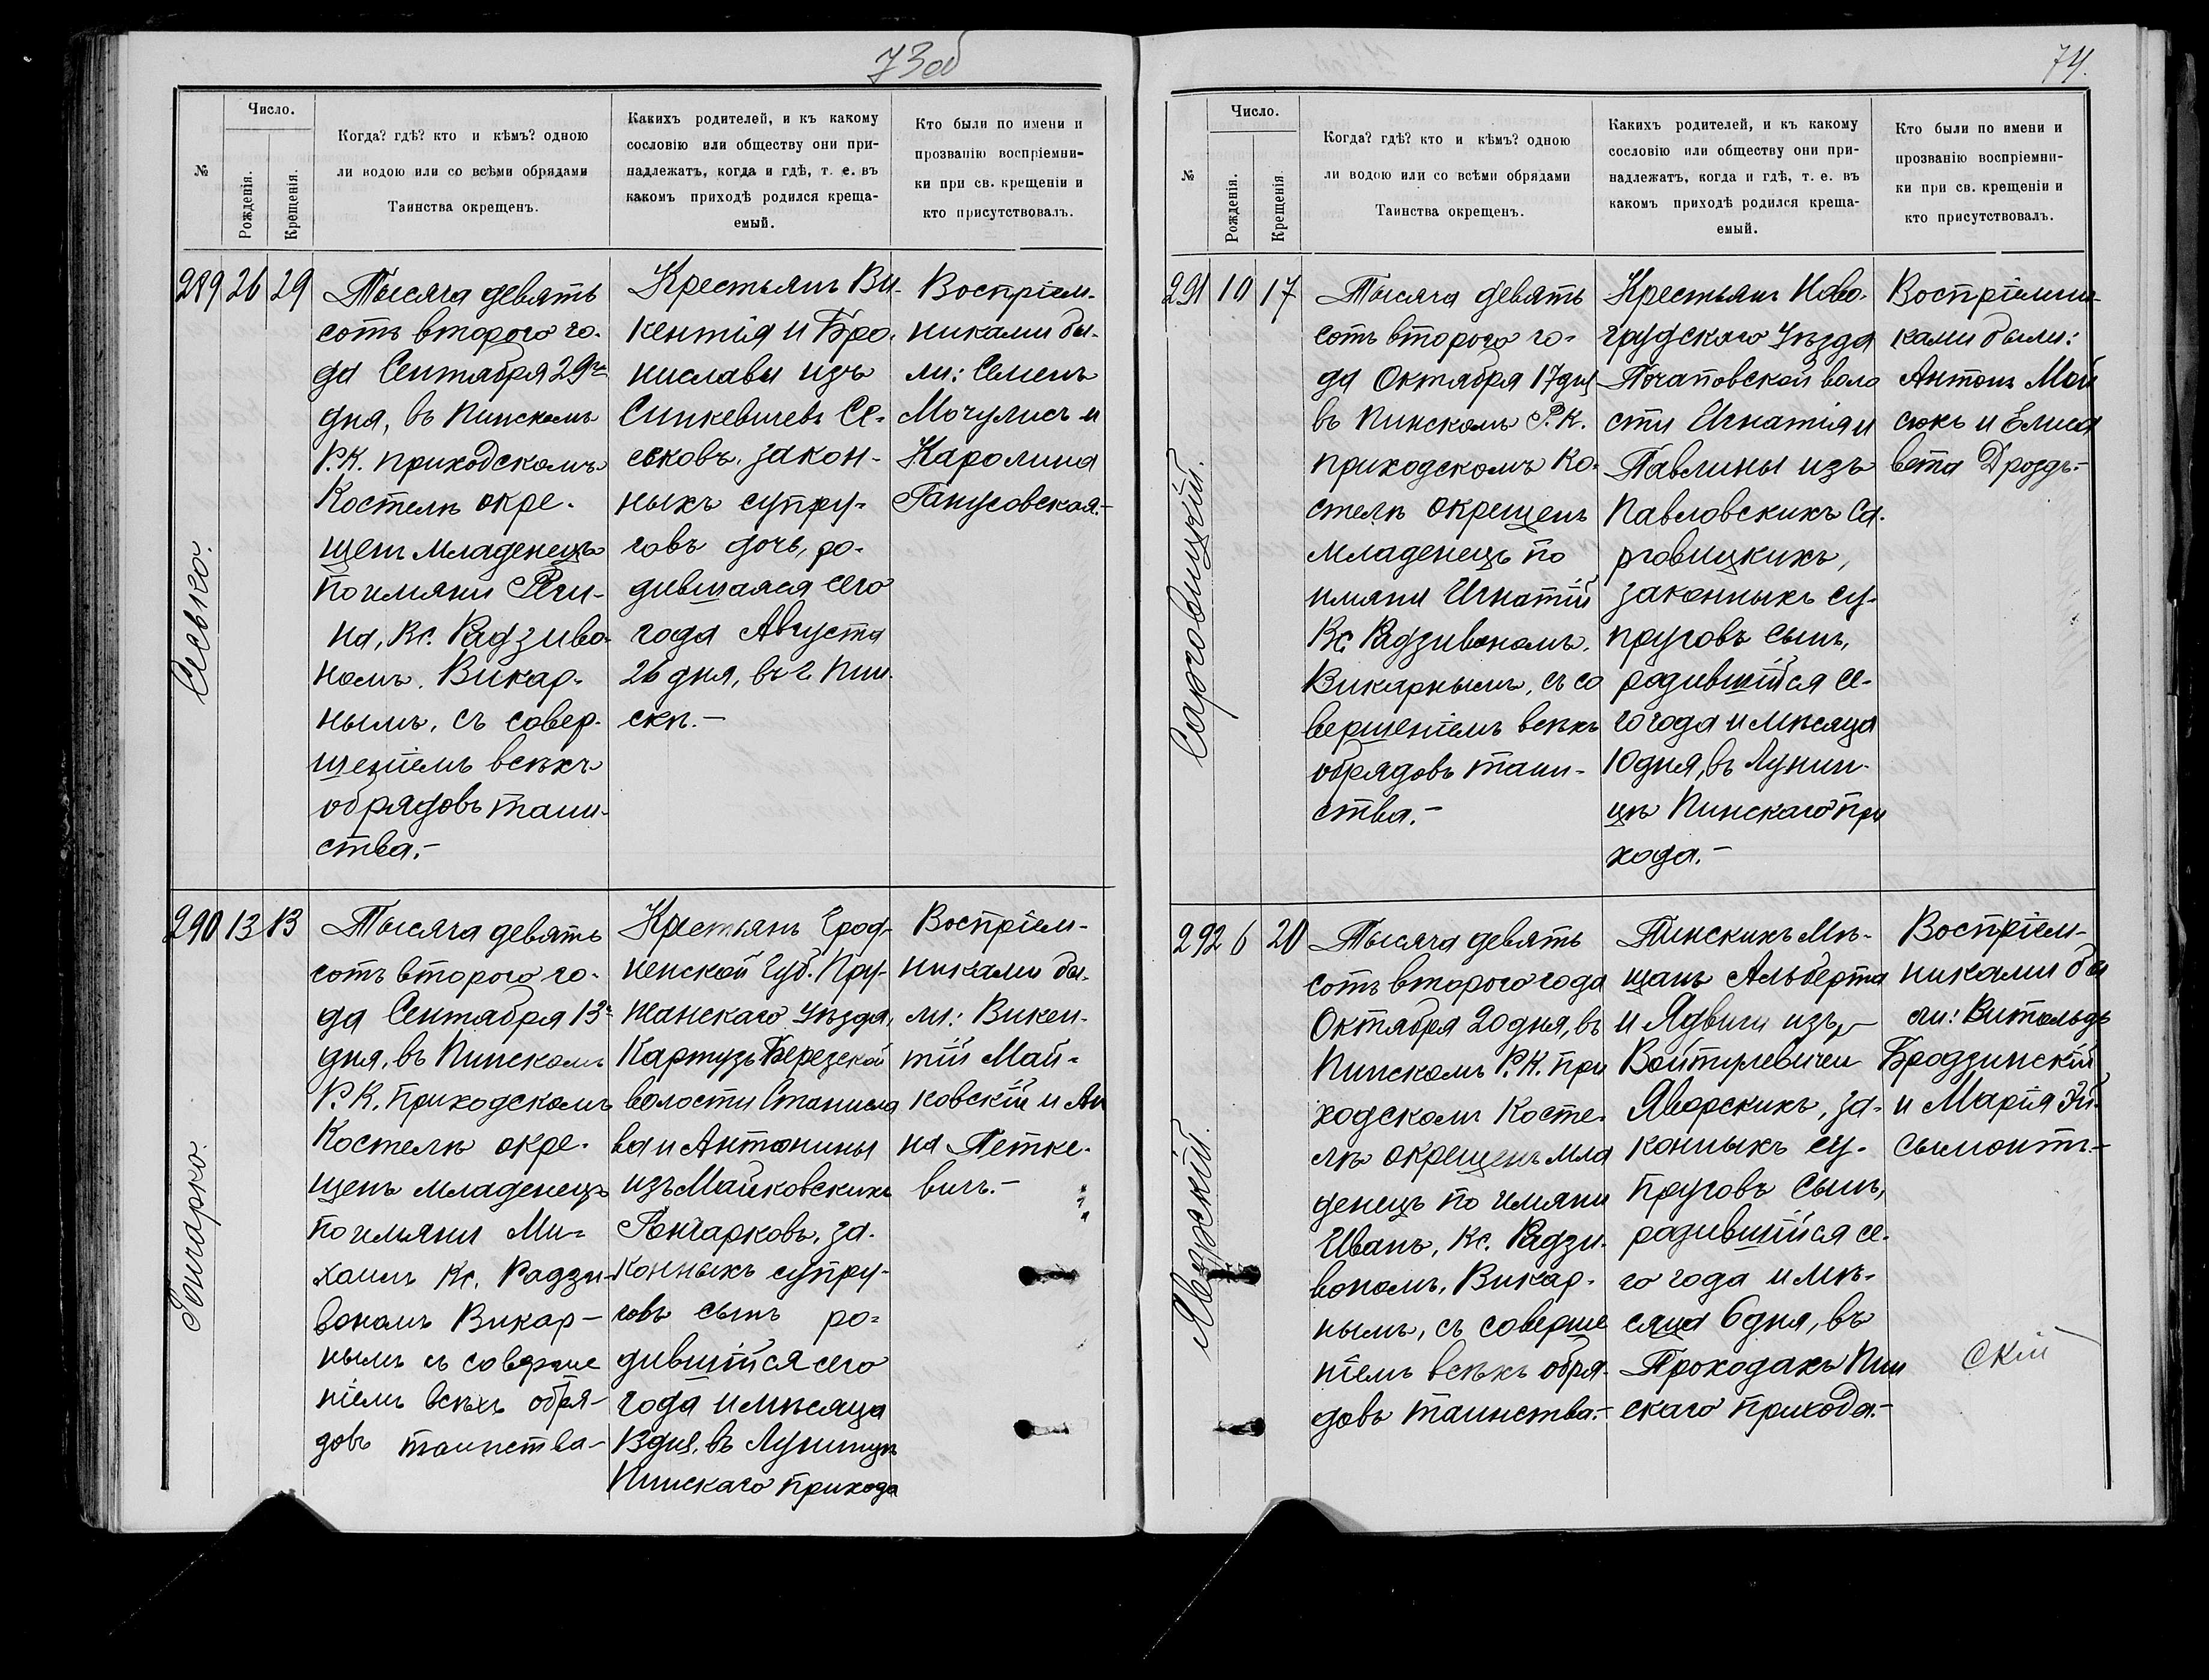 73об
№
Число.
Рожденія.
Крещенія.
Когда? гдѣ? кто и кѣмъ? одною
ли водою или со всѣми обрядами
Таинства окрещенъ.
Какихъ родителей, и къ какому
сословію или обществу они при-
надлежатъ, когда и гдѣ, т. е. въ
какомъ приходѣ родился креща-
емый.
Кто были по имени и
прозванію воспріемни-
ки при св. крещеніи и
кто присутствовалъ.
289 26 29
Тысяча девять
сотъ второго го-
да Сентября 29го
дня, въ Пинскомъ
Р.К. приходскомъ
Костелѣ окре-
щенъ младенецъ
по имяни Реги-
на, Кс. Радзиво-
номъ, Викар-
нымъ, съ совер-
шеніемъ всѣхъ
обрядовъ таин-
ства.-
Крестьянъ Ви-
кентія и Бро-
ниславы изъ
Синкевичевъ Се-
ськовъ, закон-
ныхъ супру-
говъ дочь, ро-
дившаяся сего
года Августа
26 дня, въ г. Пин-
скѣ.-
Воспріем-
никами бы-
ли: Семенъ
Мочулисъ и
Каролина
Ганусовская.-
Сесько.
290 13 13
Тысяча девять
сотъ второго го-
да Сентября 13го
дня, въ Пинскомъ
Р.К. приходскомъ
Костелѣ окре-
щенъ младенецъ
по имяни Ми-
хаилъ Кс. Радзи-
вономъ Викар-
нымъ съ соверше
ніемъ всѣхъ обря-
довъ таинства-
Крестьянъ Грод-
ненской Губ. Пру-
жанскаго Уѣзда,
Картузъ Березской
волости Станисла
ва и Антонины
изъ Майковскихъ
Гончарковъ, за-
конныхъ супру-
говъ сынъ ро-
дившійся сего
года и мѣсяца
13 дня, въ Лунинцѣ
Пинскаго прихода
Воспріем-
никами бы-
ли: Викен-
тій Май-
ковскій и Ан
на Петке-
вичъ.-
Гончарко.
74.
№
Число.
Рожденія.
Крещенія
Когда? гдѣ? кто и кѣмъ? одною
ли водою или со всѣми обрядами
Таинства окрещенъ.
Какихъ родителей, и къ какому
сословію или обществу они при-
надлежатъ, когда и гдѣ, т. е. въ
какомъ приходѣ родился креща-
емый.
Кто были по имени и
прозванію воспріемни-
ки при св. крещеніи и
кто присутствовалъ.
291 10 17
Тысяча девять
сотъ второго го-
да Октября 17 дня
въ Пинскомъ Р.К.
приходскомъ Ко-
стелѣ окрещенъ
младенецъ по
имяни Игнатій
Кс. Радзивономъ,
Викарнымъ, съ со
вершеніемъ всѣхъ
обрядовъ таин-
ства.-
Крестьянъ Ново-
грудскаго Уѣзда
Почаповской воло
сти Игнатія и
Павлины изъ
Павловскихъ Са-
рговицкихъ,
законныхъ су-
пруговъ сынъ,
родившійся се-
го года и мѣсяца
10 дня, въ Лунин-
цѣ Пинскаго при
хода.-
Воспріемни-
ками были:
Антонъ Мой
сюкъ и Елиса
вета Дроздъ.-
Сарговицкій.
292 6 20
Тысяча девять
сотъ второго года
Октября 20 дня, въ
Пинскомъ Р.К. при
ходскомъ Косте-
лѣ окрещенъ мла
денецъ по имяни
Иванъ, Кс. Радзи-
вономъ, Викар-
нымъ, съ соверше
ніемъ всѣхъ обря-
довъ таинства.-
Пинскихъ Мѣ-
щанъ Альберта
и Ядвиги изъ
Войтулевичей
Яворскихъ, за-
конныхъ су-
пруговъ сынъ,
родившійся се-
го года и мѣ-
сяца 6 дня, въ
Проходахъ Пин
скаго прихода.-
Воспріем-
никами бы
ли: Витольдъ
Бродзинскій
и Марія Эй-
сымонтъ.-
скій
Яворскій.